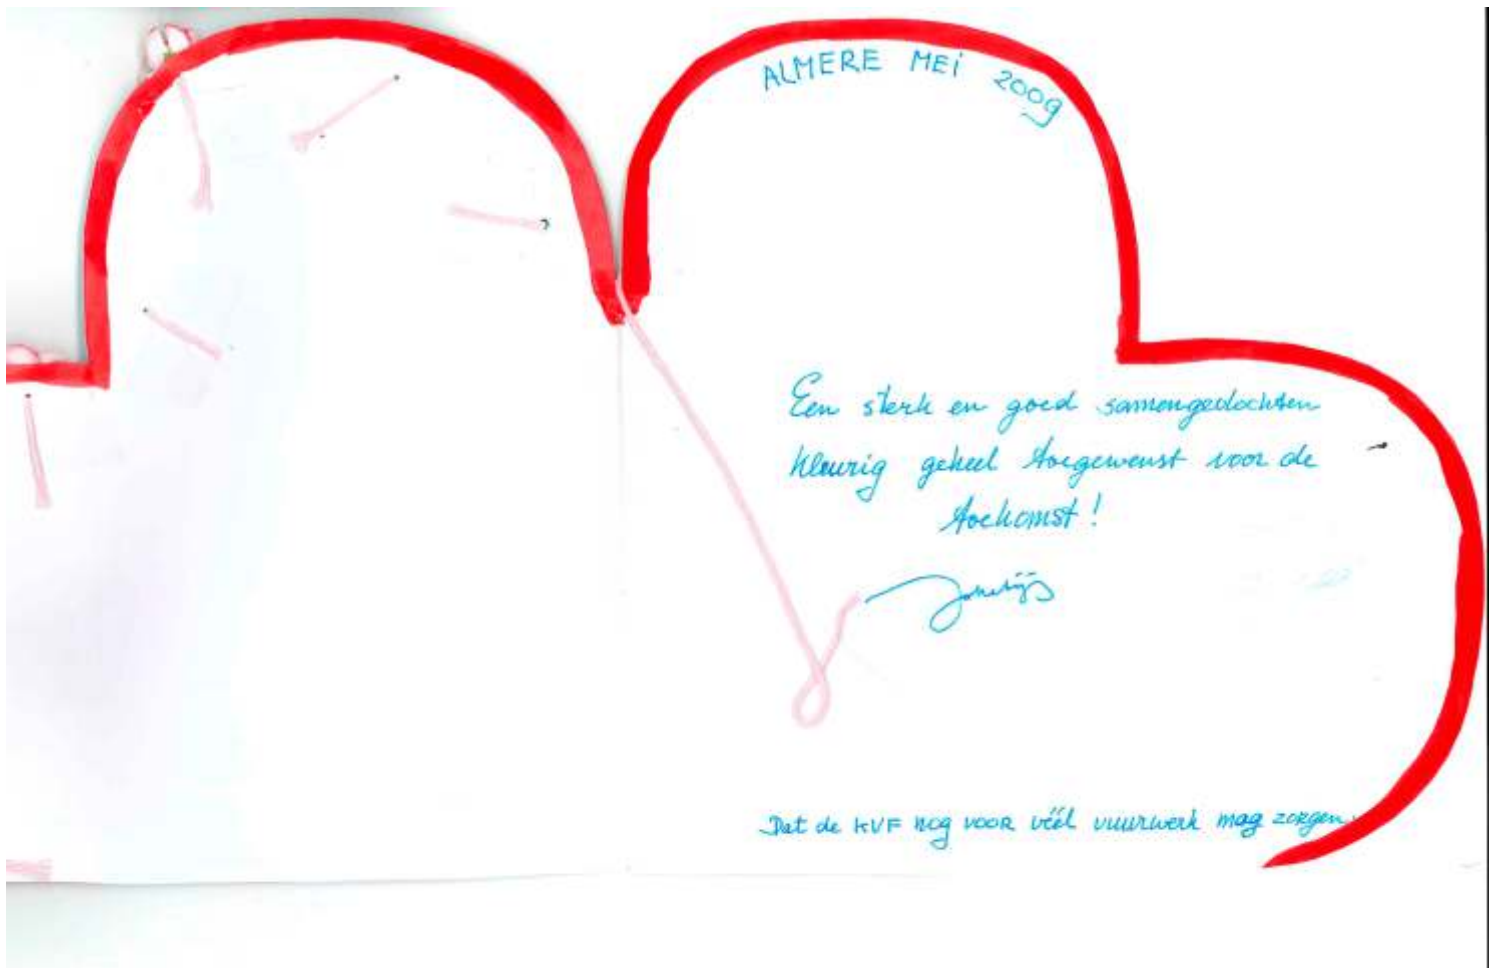 ALMERE MEi 2009
Een sterk en goed samengevlochten
kleurig geheel toegewenst voor de
toekomst!
Dat de KVF nog voor véél vuurwerk mag zorgen.